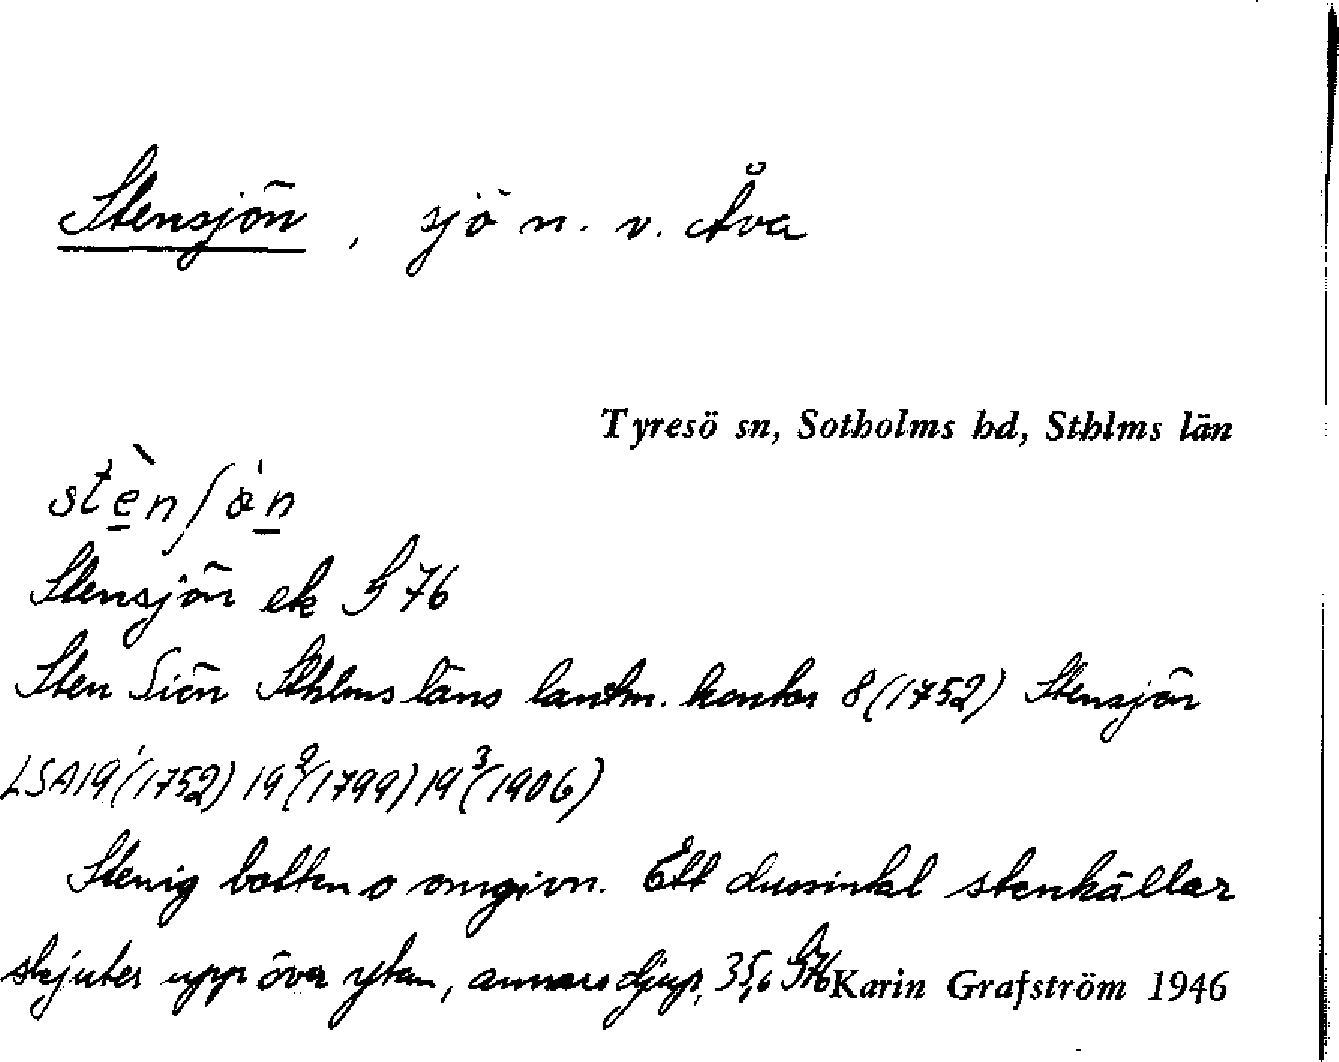 Stensjön, sjö n. v. Åva
Tyresö sn, Sotholms hd, Sthlms län
stènʃⱥ̀n
Stensjön ek G 76
Sten Siön Sthlms läns lantm. kontor 8 (1752) Stensjön
LSA 19¹ (1752) 19² (1799) 19³ (1906)
Stenig botten o omgivn. Ett dussintal stenhällar
skjuter upp över ytan, annars djup, 35,6 G 76 Karin Grafström 1946